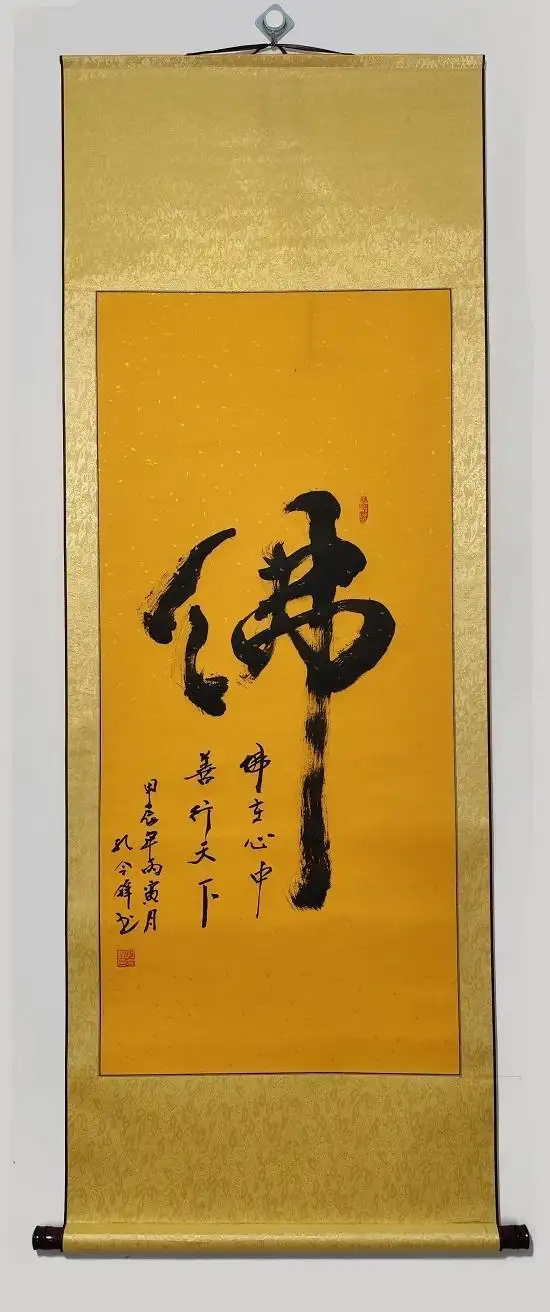 佛
佛在心中
善行天下
甲辰年丙寅月
孔令峰书